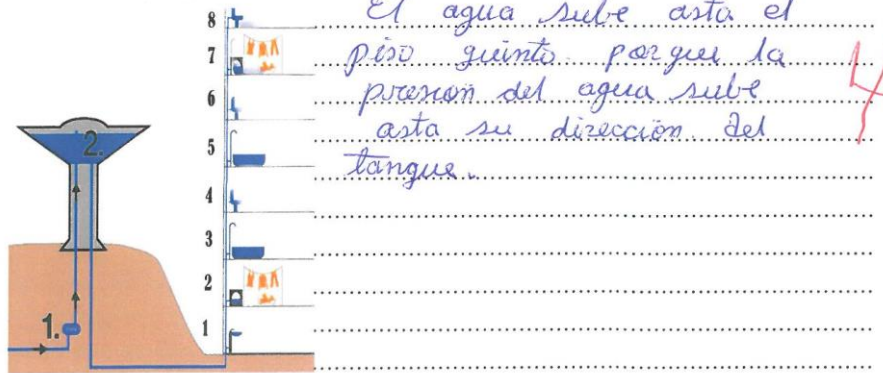 8
7
6
5
4
3
2
1
1.
2.
El agua sube asta el
piso quinto porque la
presion del agua sube
asta su dirección del
tanque.
4